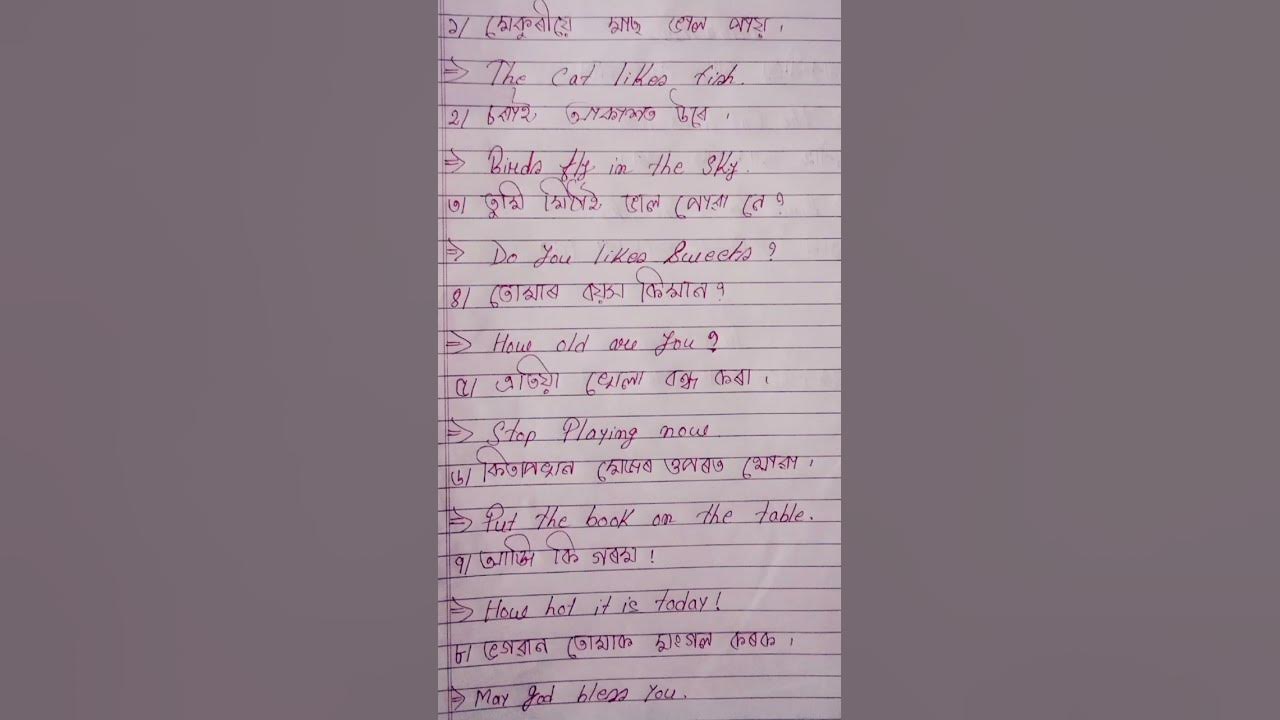 ১/ মেকুৰীয়ে মাছ ভাল পায়।
⇒ The Cat likes fish.
২/ চৰাই আকাশত উৰে।
⇒ Birds fly in the Sky.
৩/ তুমি মিঠাই ভাল পোৱা নে?
⇒ Do You likes Sweets?
৪/ তোমাৰ বয়স কিমান?
⇒ How old are You?
৫/ এতিয়া খেলা বন্ধ কৰা।
⇒ Stop Playing now.
৬/ কিতাপখন মেজৰ ওপৰত থোৱা।
⇒ Put the book on the table.
৭/ আজি কি গৰম!
⇒ How hot it is today!
৮/ ভগৱান তোমাক মংগল কৰক।
⇒ May god bless You.